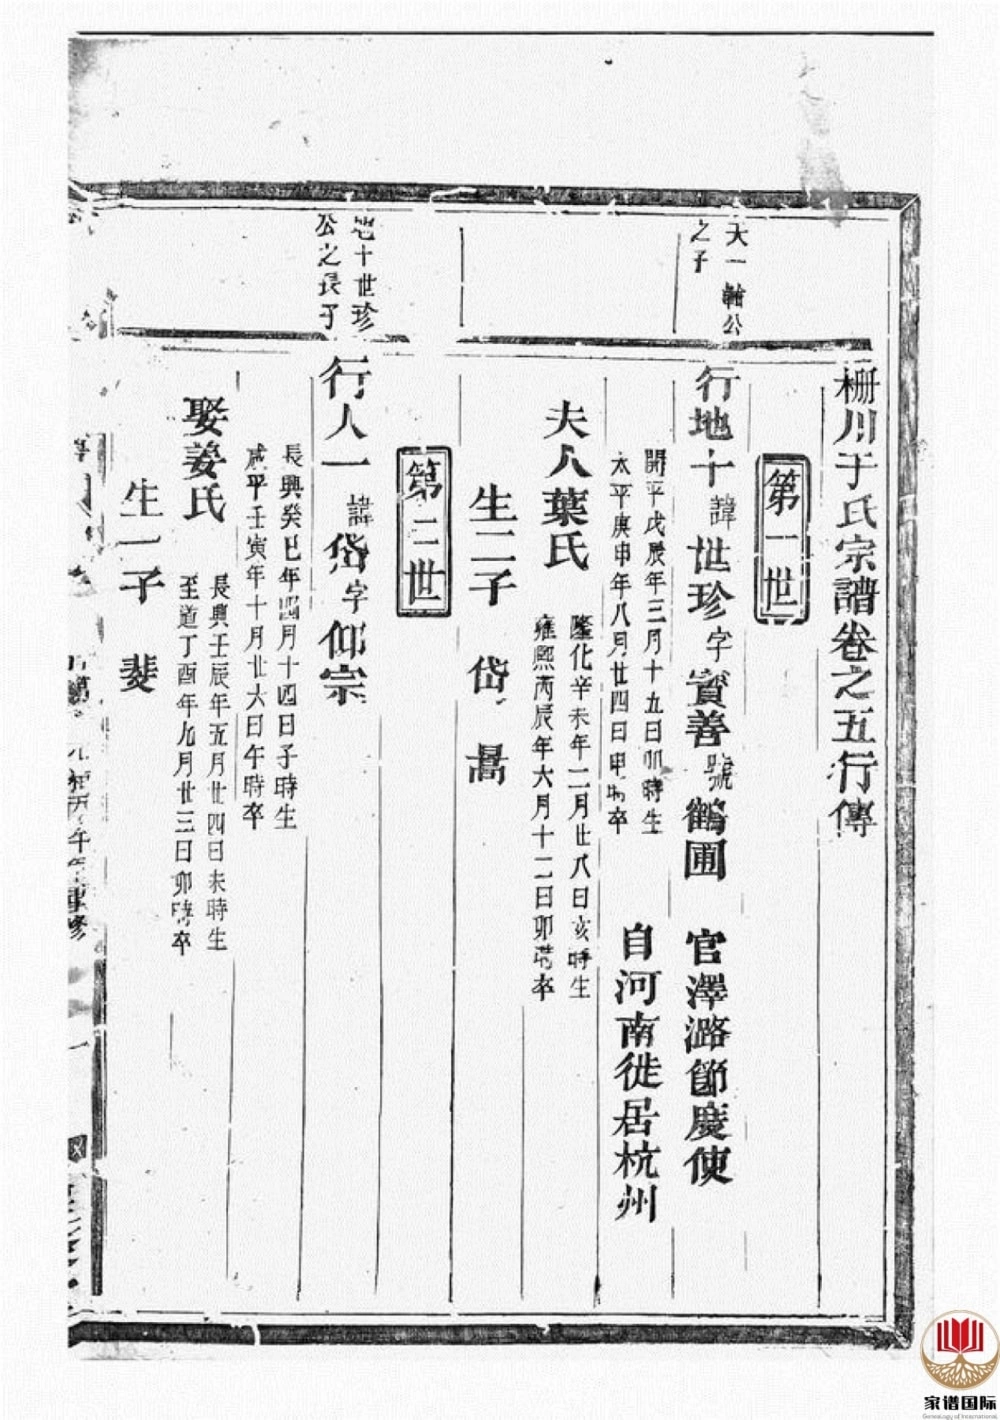 栅川于氏宗譜卷之五行傳
第一世
天一軸公
之子
行地十諱世珍字寳善號鶴圃 官澤潞節度使
開平戊辰年三月十九日卯時生
太平庚申年八月廿四日申時卒
自河南徙居杭州
夫人葉氏
隆化辛未年二月廿八日亥時生
雍熙丙辰年六月十二日卯時卒
生二子 岱 暠
第二世
地十世珍
公之長子
行人一諱岱字仰宗
長興癸巳年四月十四日子時生
咸平壬寅年十月廿六日午時卒
娶姜氏
長興壬辰年五月廿四日未時生
至道丁酉年九月廿三日卯時卒
生一子 斐
家谱国际
Genealogy of International